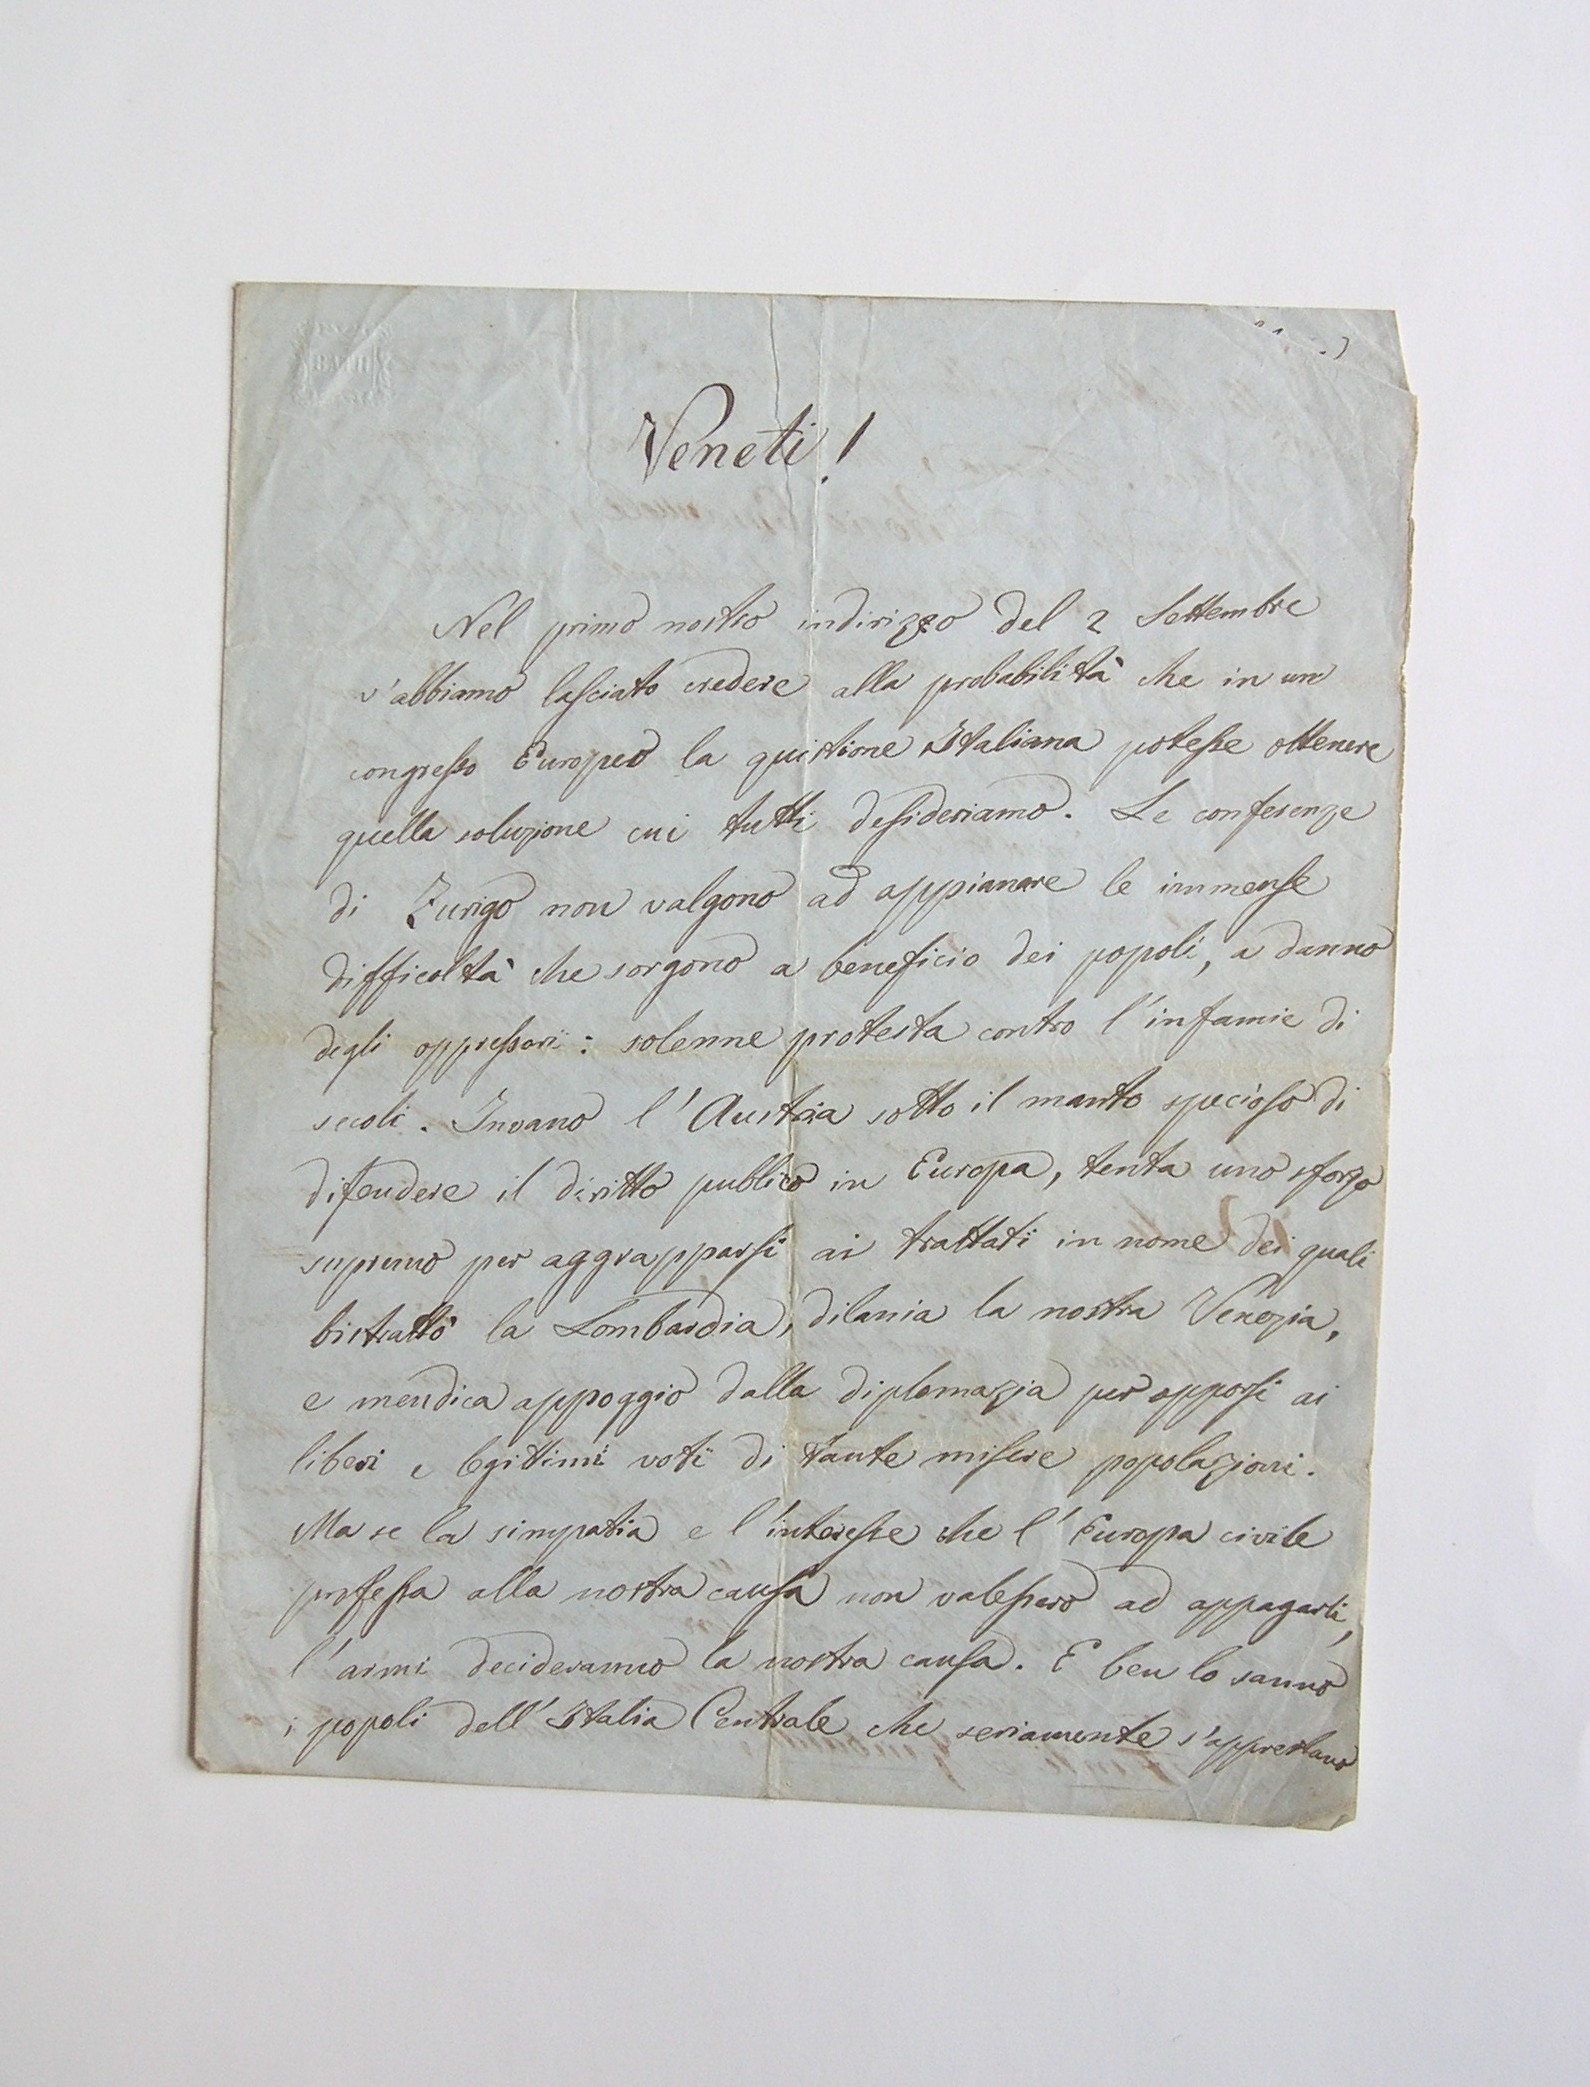 BATH
Veneti!
Nel primo nostro indirizzo del 2 Settembre
v'abbiamo lasciato credere alla probabilità che in un
congresso Europeo la quistione Italiana potesse ottenere
quella soluzione cui tutti desideriamo. Le conferenze
di Zurigo non valgono ad appianare le immense
difficoltà che sorgono a beneficio dei popoli, a danno
degli oppressori: solenne protesta contro l'infamie di
secoli. Invano l'Austria sotto il manto specioso di
difendere il diritto publico in Europa, tenta uno sforzo
supremo per aggrapparsi ai trattati in nome dei quali
bistrattò la Lombardia, dilania la nostra Venezia,
e mendica appoggio dalla diplomazia per opporsi ai
liberi e legittimi voti di tante misere popolazioni.
Ma se la simpatia e l'interesse che l'Europa civile
professa alla nostra causa non valessero ad appagarli,
l'armi decideranno la nostra causa. E ben lo sanno
i popoli dell'Italia Centrale che seriamente s'apprestano